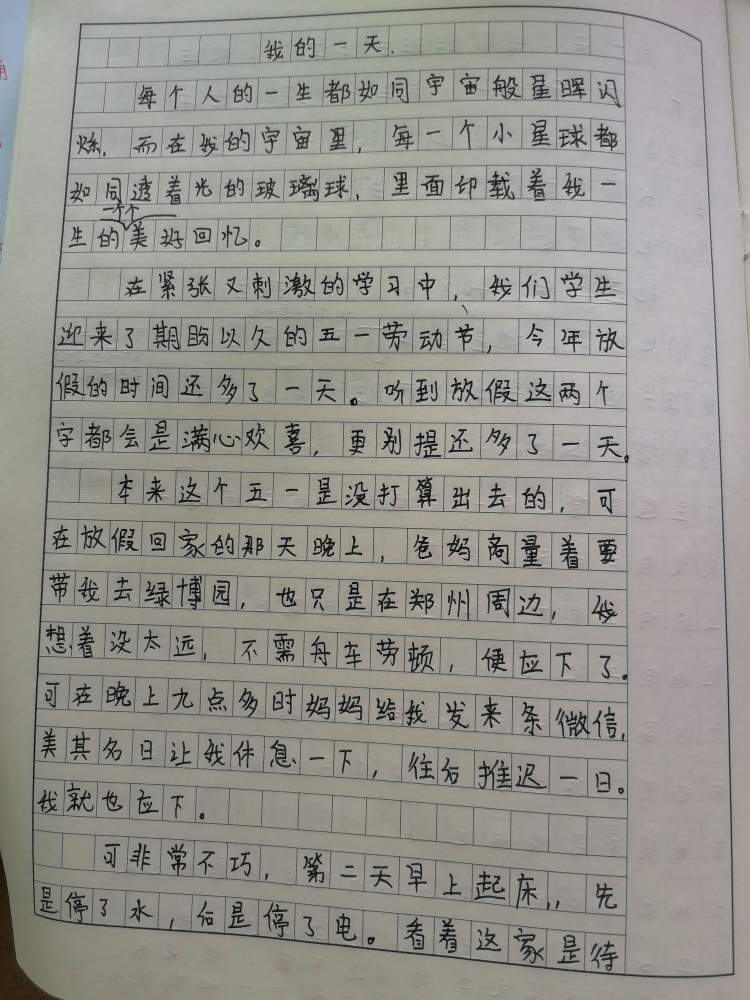 我的一天.
每个人的一生都如同宇宙般星晖闪
烁,而在我的宇宙里,每一个小星球都
如同透着光的玻璃球,里面印载着我一
一个个
生的美好回忆。
在紧张又刺激的学习中,我们学生
迎来了期盼以久的五一劳动节,今年放
假的时间还多了一天。听到放假这两个
字都会是满心欢喜,更别提还多了一天。
本来这个五一是没打算出去的,可
在放假回家的那天晚上,爸妈商量着要
带我去绿博园,也只是在郑州周边,我
想着没太远,不需舟车劳顿,便应下了。
可在晚上九点多时妈妈给我发来条微信,
美其名曰让我休息一下,往后推迟一日。
我就也应下。
可非常不巧,第二天早上起床,,先
是停了水,后是停了电。看着这家是待